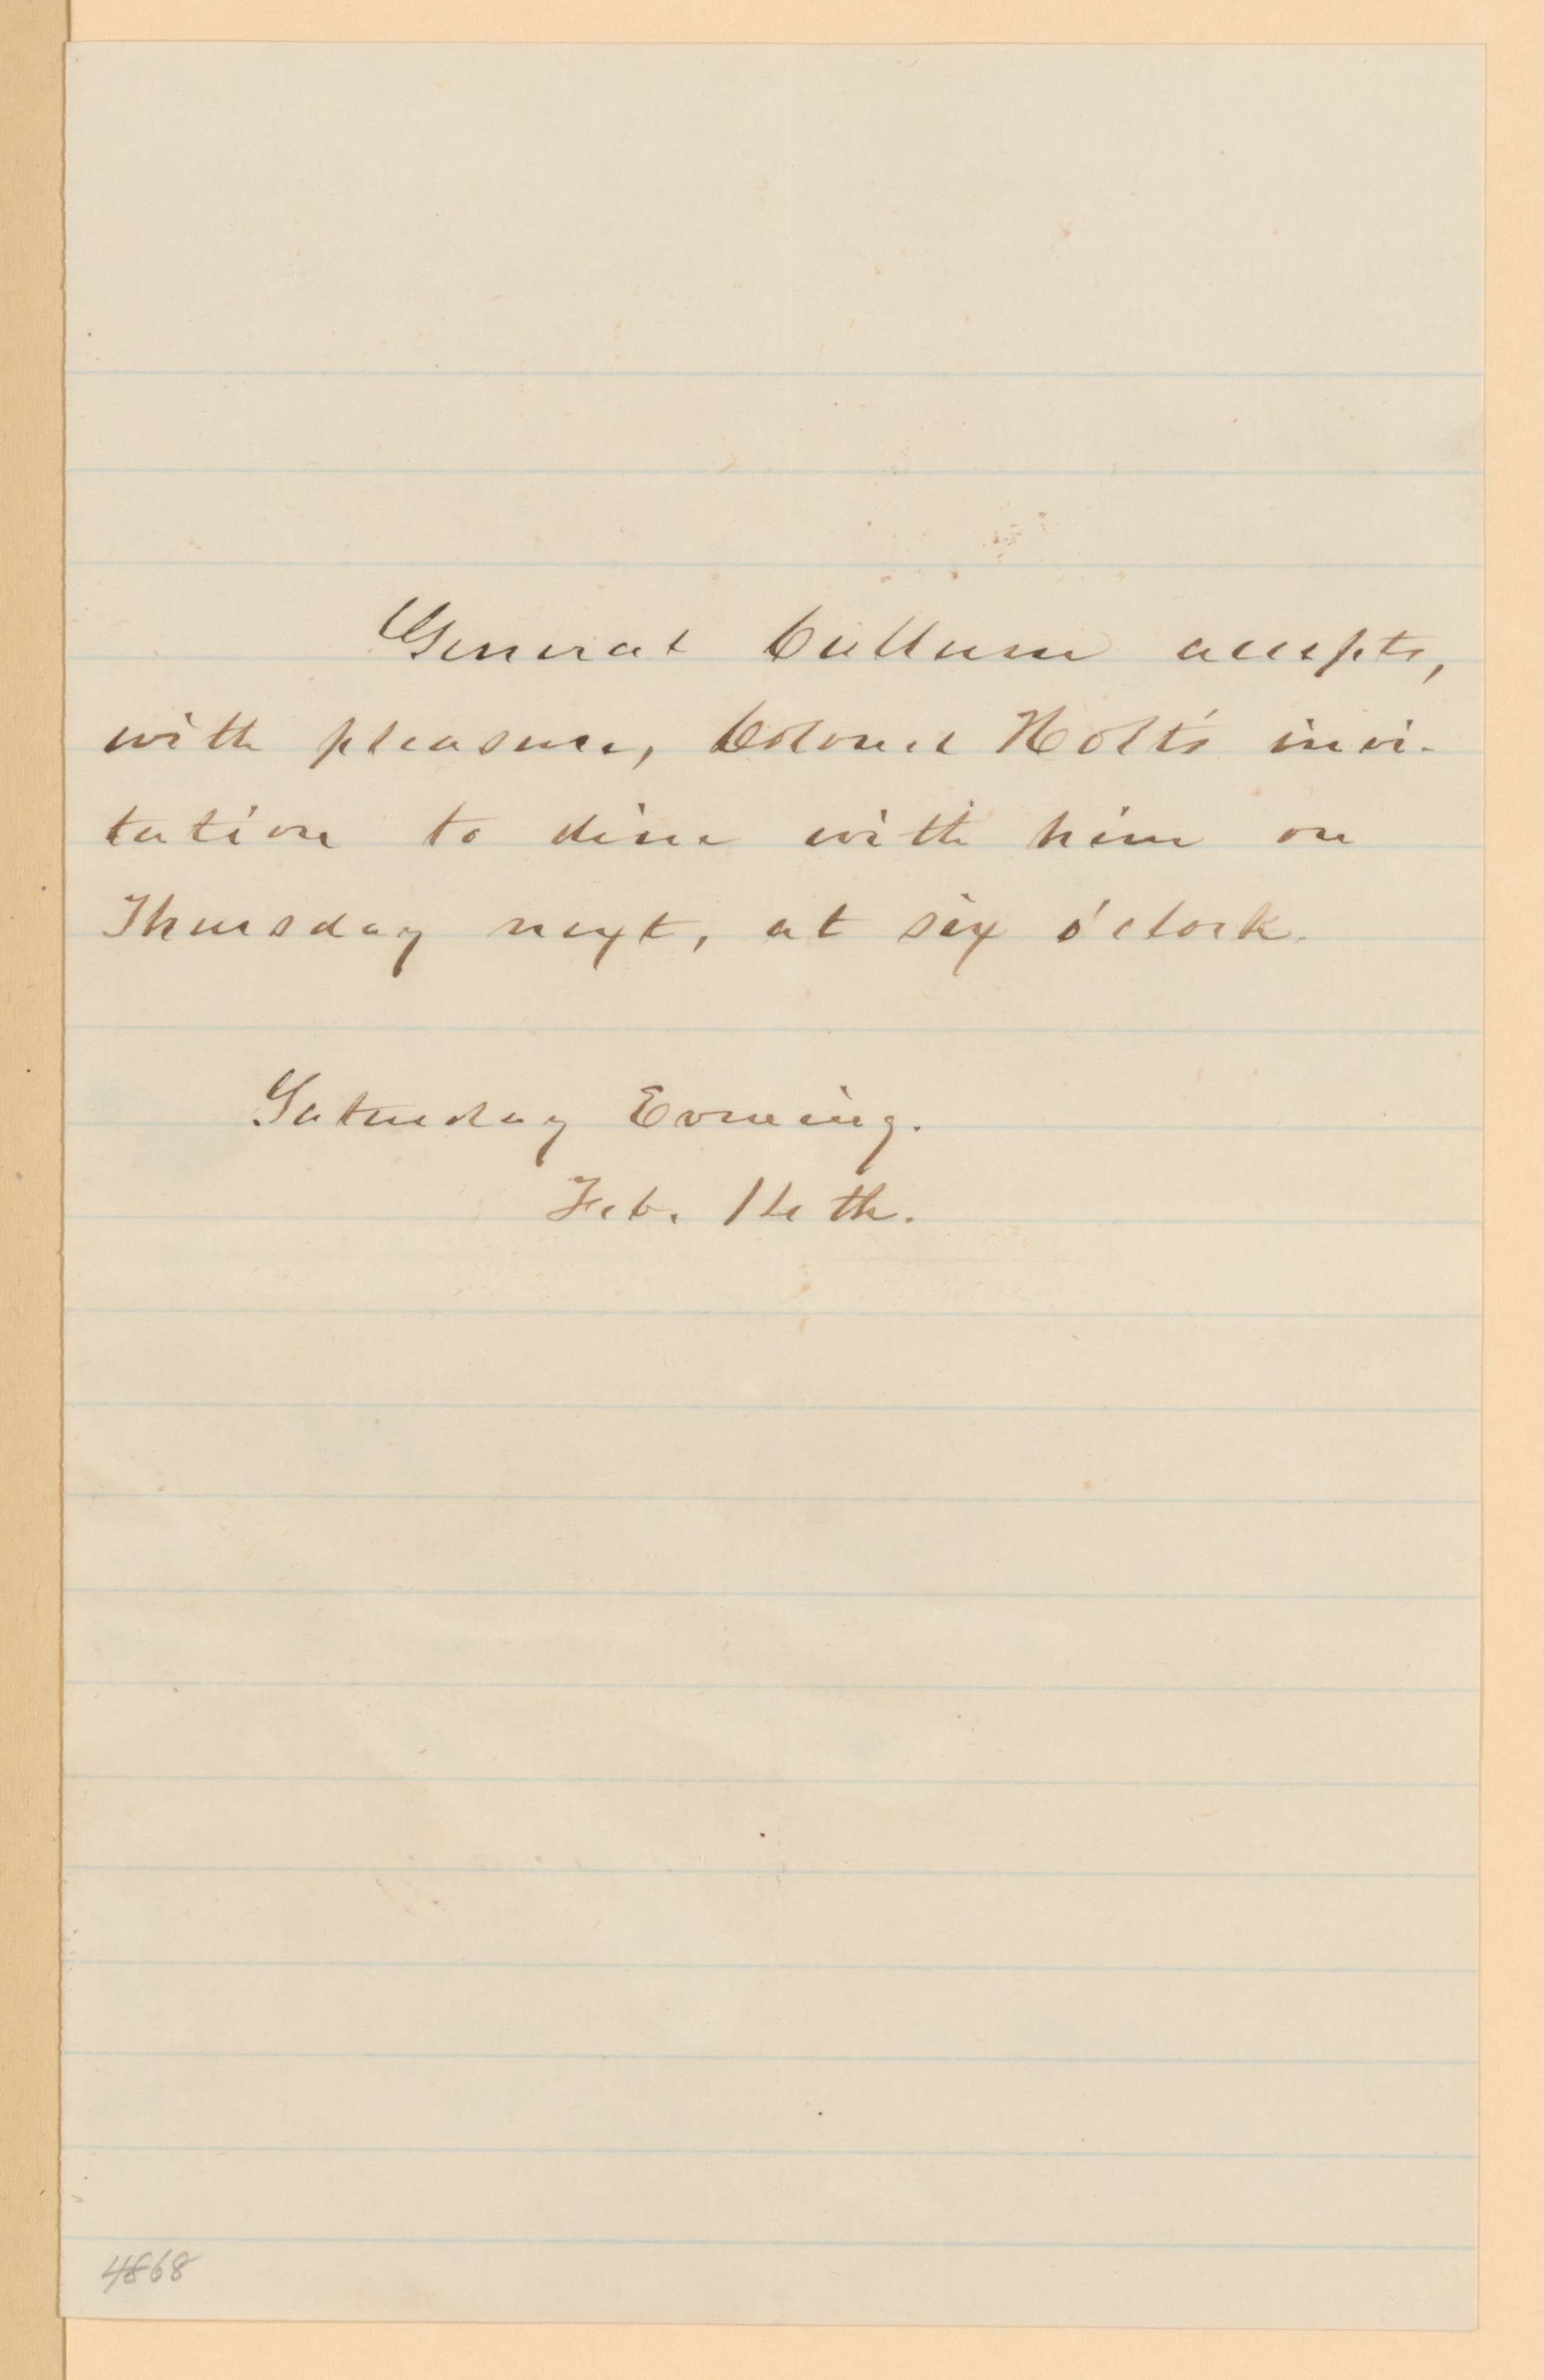 General Cullum accepts,
with pleasure, Colonel Holt's invi-
tation to dine with him on
Thursday next, at six o'clock.
Saturday Evening.
Feb. 14th.
4868